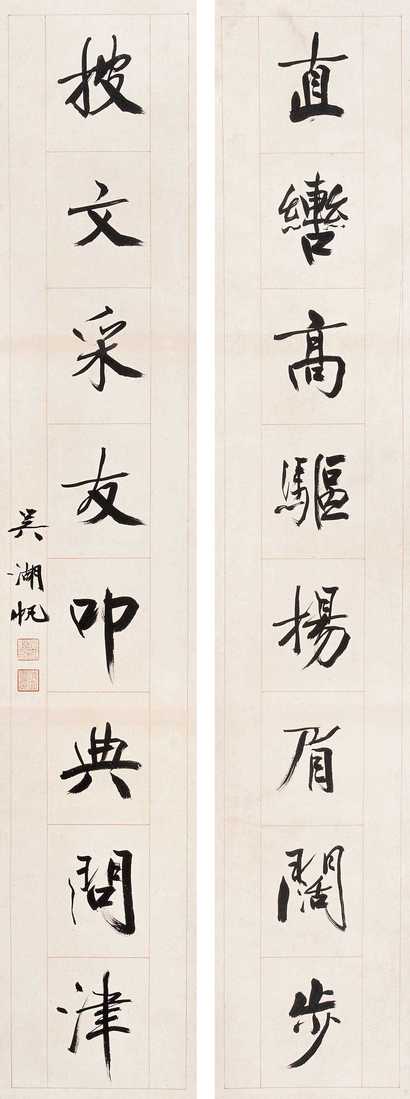 直轡高驅揚眉闊步
披文采友叩典問津
吳湖帆